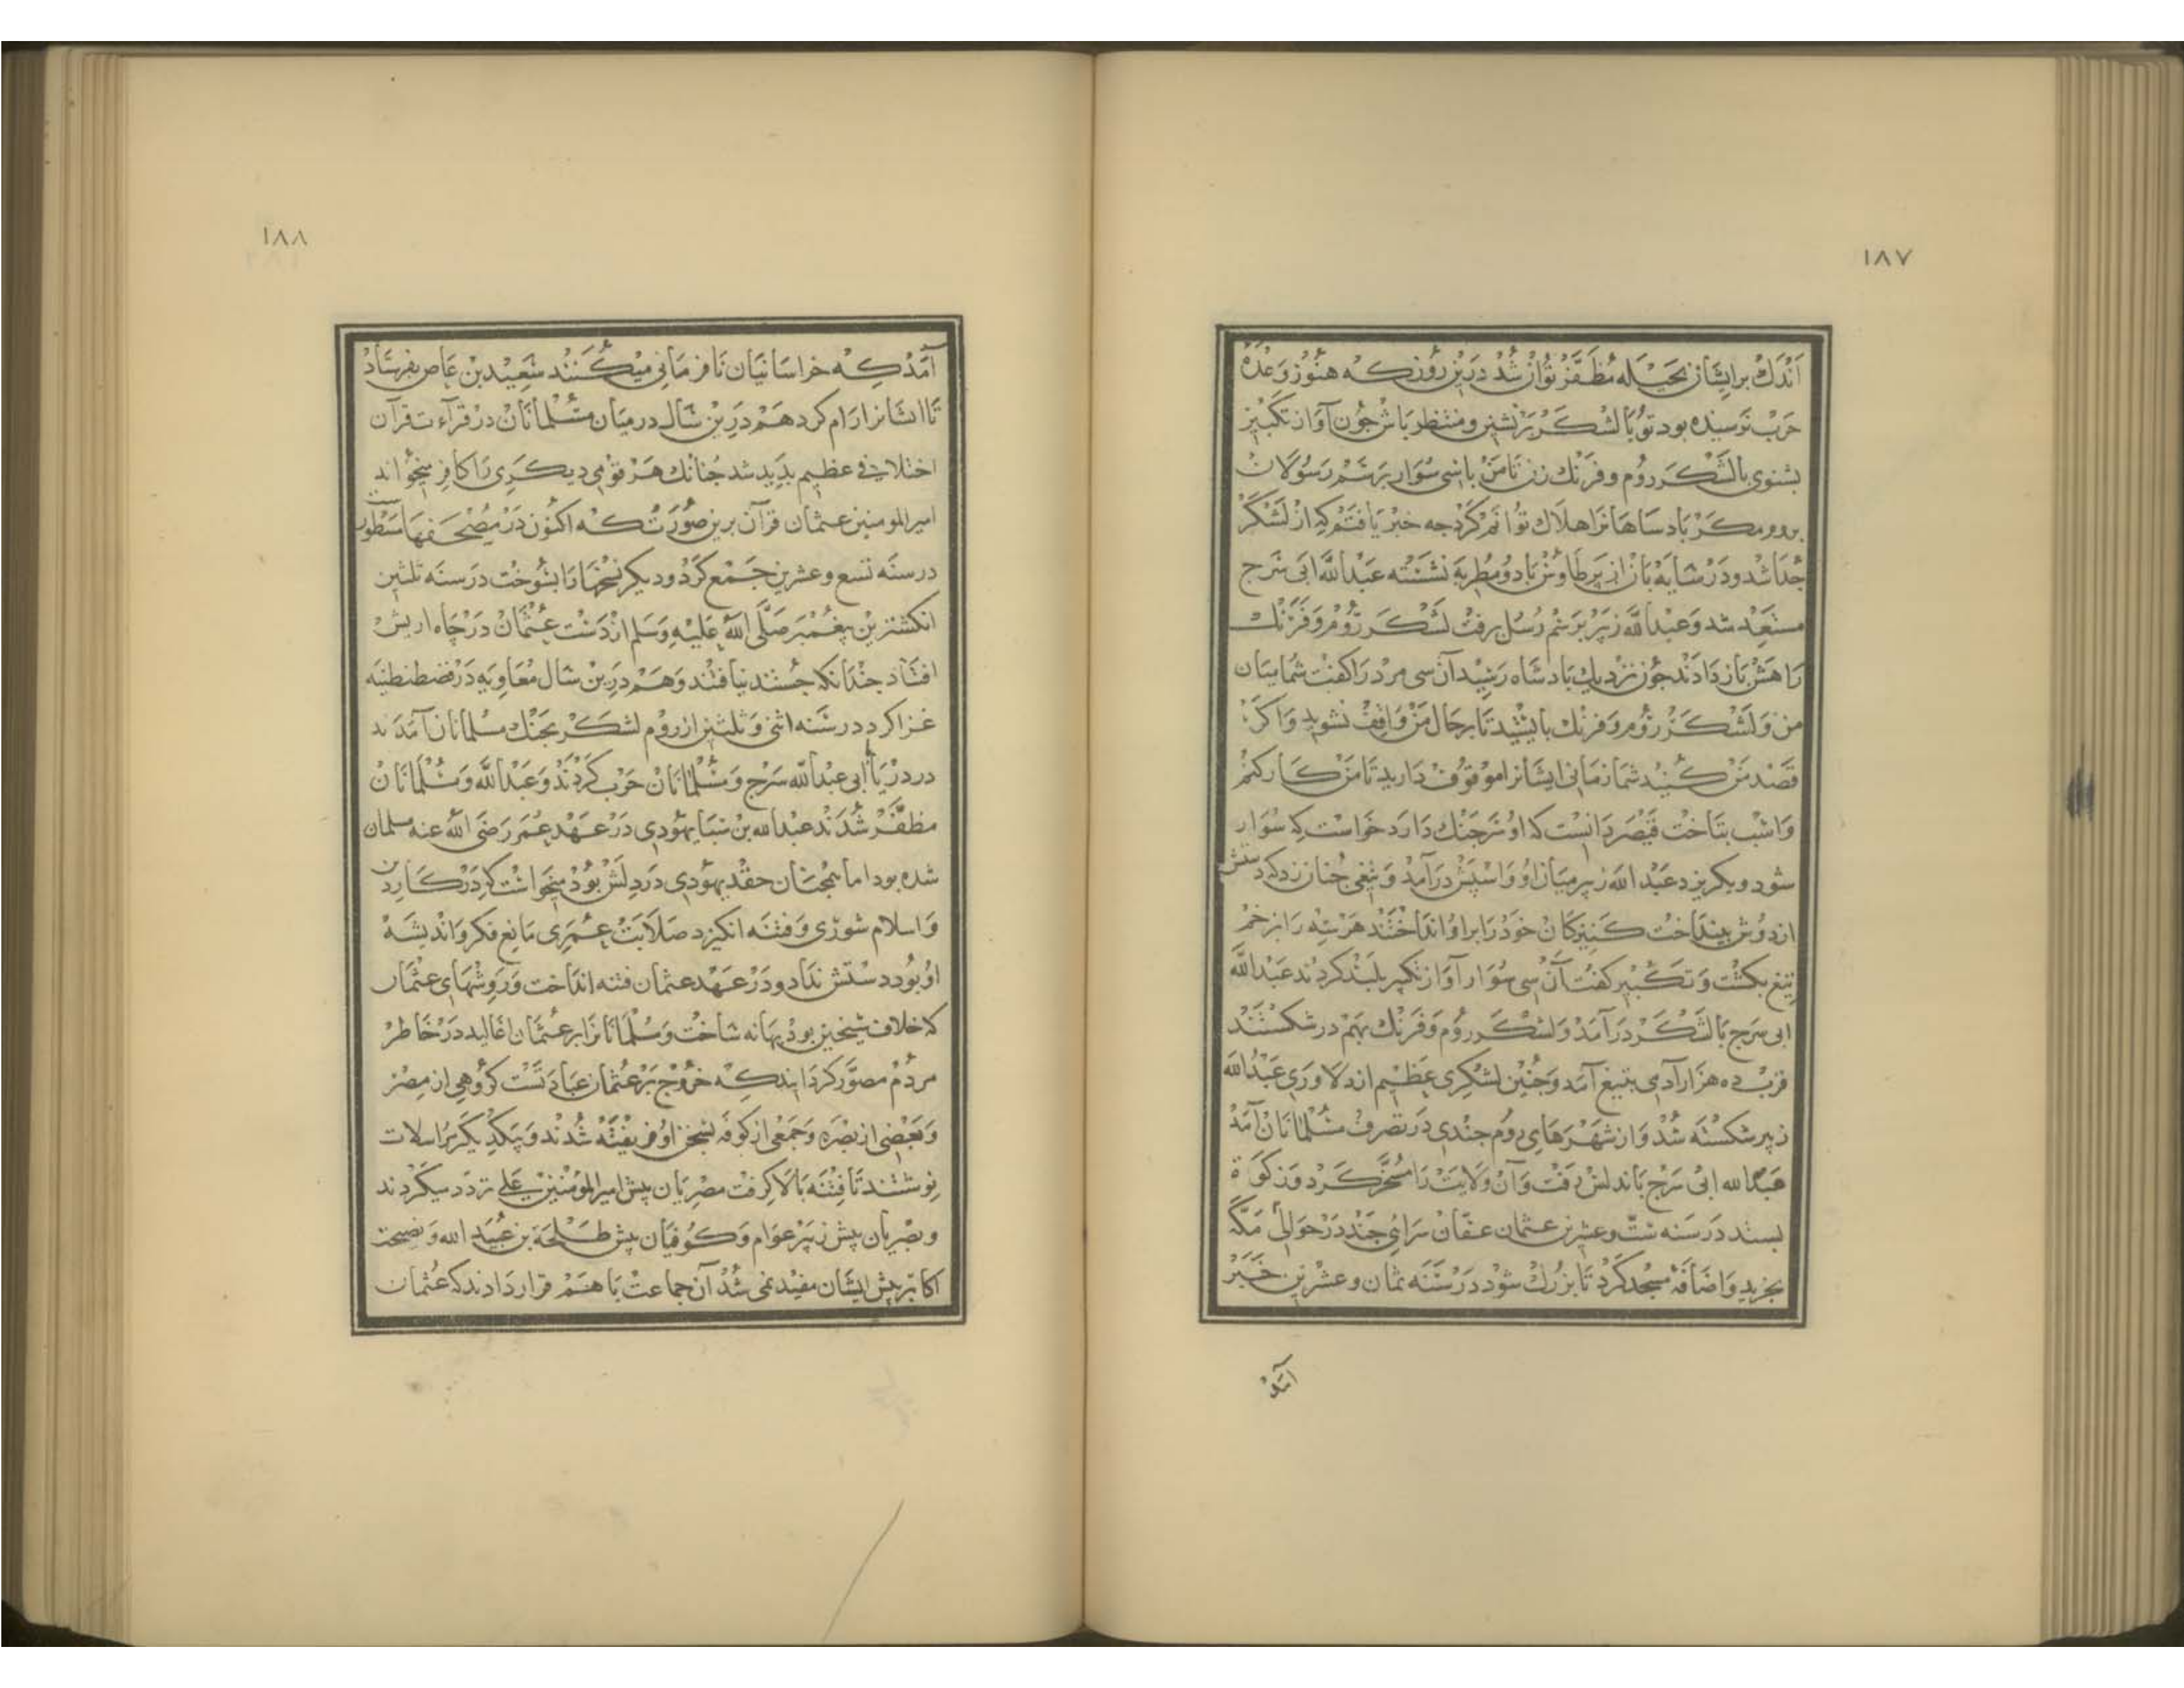 ١٨٧
اندك بر ايشان بحيله مظفر توان شد درين روز كه هنوز وعده
حرب نرسيده بود تو با لشكر برنشين و منتظر باش جون آواز تكبير
بشنوى با لشكر روم و فرنك زن تا من با سى سوار برسم رسولان
بروم مكر بادساهانرا هلاك توانم كرد جه خبر يافتم كه از لشكر
جدا شد و در سايه بان از پر طاوس با دو مطربه نشسته عبدالله ابى سرج
مستعد شد و عبدالله زبير برسم رسل برفت لشكر روم و فرنك
راهش باز دادند جون نزديك بادشاه رشيد آن سى مرد را كفت شما ميان
من و لشكر روم و فرنك بايستيد تا بر حال من واقف نشويد و اكر
قصد من كنيد شما زمانى ايشانرا موقوف داريد تا من كار كنم
و اسب بتاخت قيصر دانست كه او سر جنك دارد خواست كه سوار
شود و بكريزد عبدالله زبير ميان او و اسپش درآمد و تيغى جنان زد كه دستش
از دوش بينداخت كنيزكان خود را بر او انداختند هر سه را بزخم
تيغ بكشت و تكبير كفت آن سى سوار آواز تكبير بلند كردند عبدالله
ابى سرج با لشكر درآمد و لشكر روم و فرنك بهم در شكستند
قرب ده هزار آدمى بتيغ آمد و جنين لشكرى عظيم از دلاورى عبدالله
زبير شكسته شد و از شهرهاى روم جندى در تصرف مسلمانان آمد
عبدالله ابى سرج باندلس رفت و آن ولايت را مسخر كرد و زكوة
بستد در سنه ست و عشرين عثمان عفان سرائى جند در حوالى مكه
بخريد و اضافه مسجد كرد تا بزرك شود در سنه ثمان و عشرين خبر
آمد
١٨٨
آمد كه خراسانيان نافرمانى ميكنند سعيد بن عاص بفرستاد
تا ايشانرا رام كرد هم درين سال درميان مسلمانان در قراءت قرآن
اختلافى عظيم بديد شد جنانك هر قومى ديكرى را كافر ميخواند
اميرالمومنين عثمان قرآن برين صورت كه اكنون در مصحفها مسطورست
در سنه تسع و عشرين جمع كرد و ديكر نسخها را بسوخت در سنه ثلثين
انكشترين پيغمبر صلى الله عليه و سلم از دست عثمان در چاه اريس
افتاد جندانكه جستند نيافتند و هم درين سال معاويه در قسطنطنيه
غزا كرد در سنه اثنى و ثلثين از روم لشكر بجنك مسلمانان آمدند
در دريا ابى عبدالله سرج و مسلمانان حرب كردند و عبدالله و مسلمانان
مظفر شدند عبدالله بن سبا يهودى در عهد عمر رضى الله عنه مسلمان
شده بود اما همجنان حقد يهودى در دلش بود ميخواست كه در كار دين
و اسلام شورى و فتنه انكيزد صلابت عمرى مانع فكر و انديشه
او بود دستش نداد و در عهد عثمان فتنه انداخت و روشهاى عثمان
كه خلاف شيخين بود بهانه ساخت و مسلمانانرا بر عثمان اغاليد در خاطر
مردم مصور كردانيد كه خروج بر عثمان عبادتست كروهى از مصر
و بعضى از بصره و جمعى از كوفه بسخن او فريفته شدند و بيكديكر مراسلات
نوشتند تا فتنه بالا كرفت مصريان پيش اميرالمومنين على تردد ميكردند
و بصريان پيش زبير عوام و كوفيان پيش طلحة بن عبيد الله و نصيحت
اكابر پيش ايشان مفيد نمى شد آن جماعت با هم قرار دادند كه عثمان